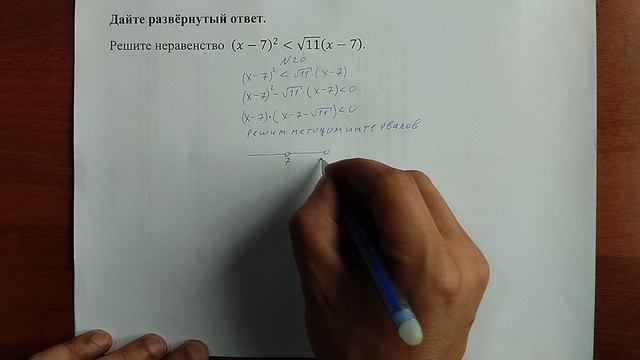 Дайте развёрнутый ответ.
Решите неравенство (x − 7)² < √11(x − 7).
N20
(x-7)² < √11·(x-7)
(x-7)² - √11·(x-7)<0
(x-7)·(x-7-√11)<0
решим методом интервалов.
7